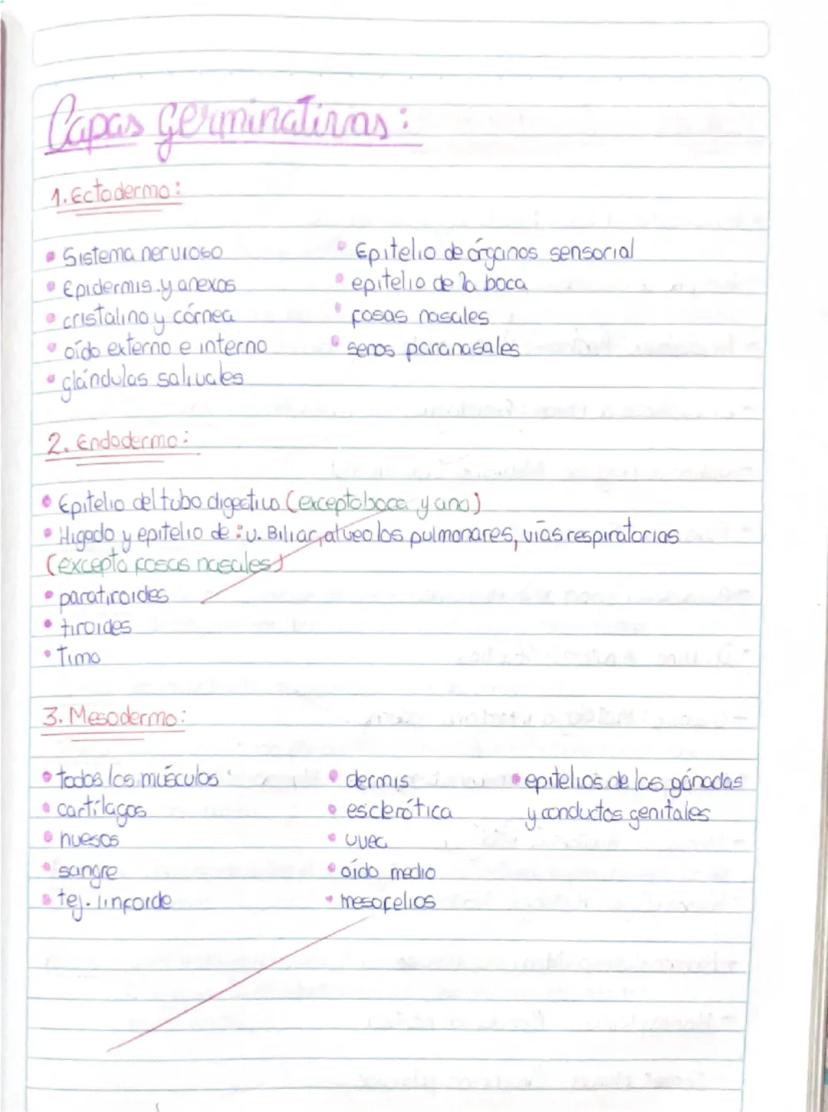 Capas germinativas:
1. Ectodermo:
• Sistema nervioso
• Epidermis y anexos
• cristalino y córnea
• oído externo e interno
• glándulas salivales
• Epitelio de órganos sensorial
• epitelio de la boca
• fosas nasales
• senos paranasales
2. Endodermo:
• Epitelio del tubo digestivo (excepto boca y ano)
• Higado y epitelio de: v. Biliar, alveolos pulmonares, vías respiratorias
(excepto fosas nasales)
• paratiroides
• tiroides
• Timo
3. Mesodermo:
• todos los músculos
• cartílagos
• huesos
• sangre
• tej. linfoide
• dermis
• esclerótica
• uvea
• oído medio
• mesofelios
• epitelios de las gónadas
y conductos genitales